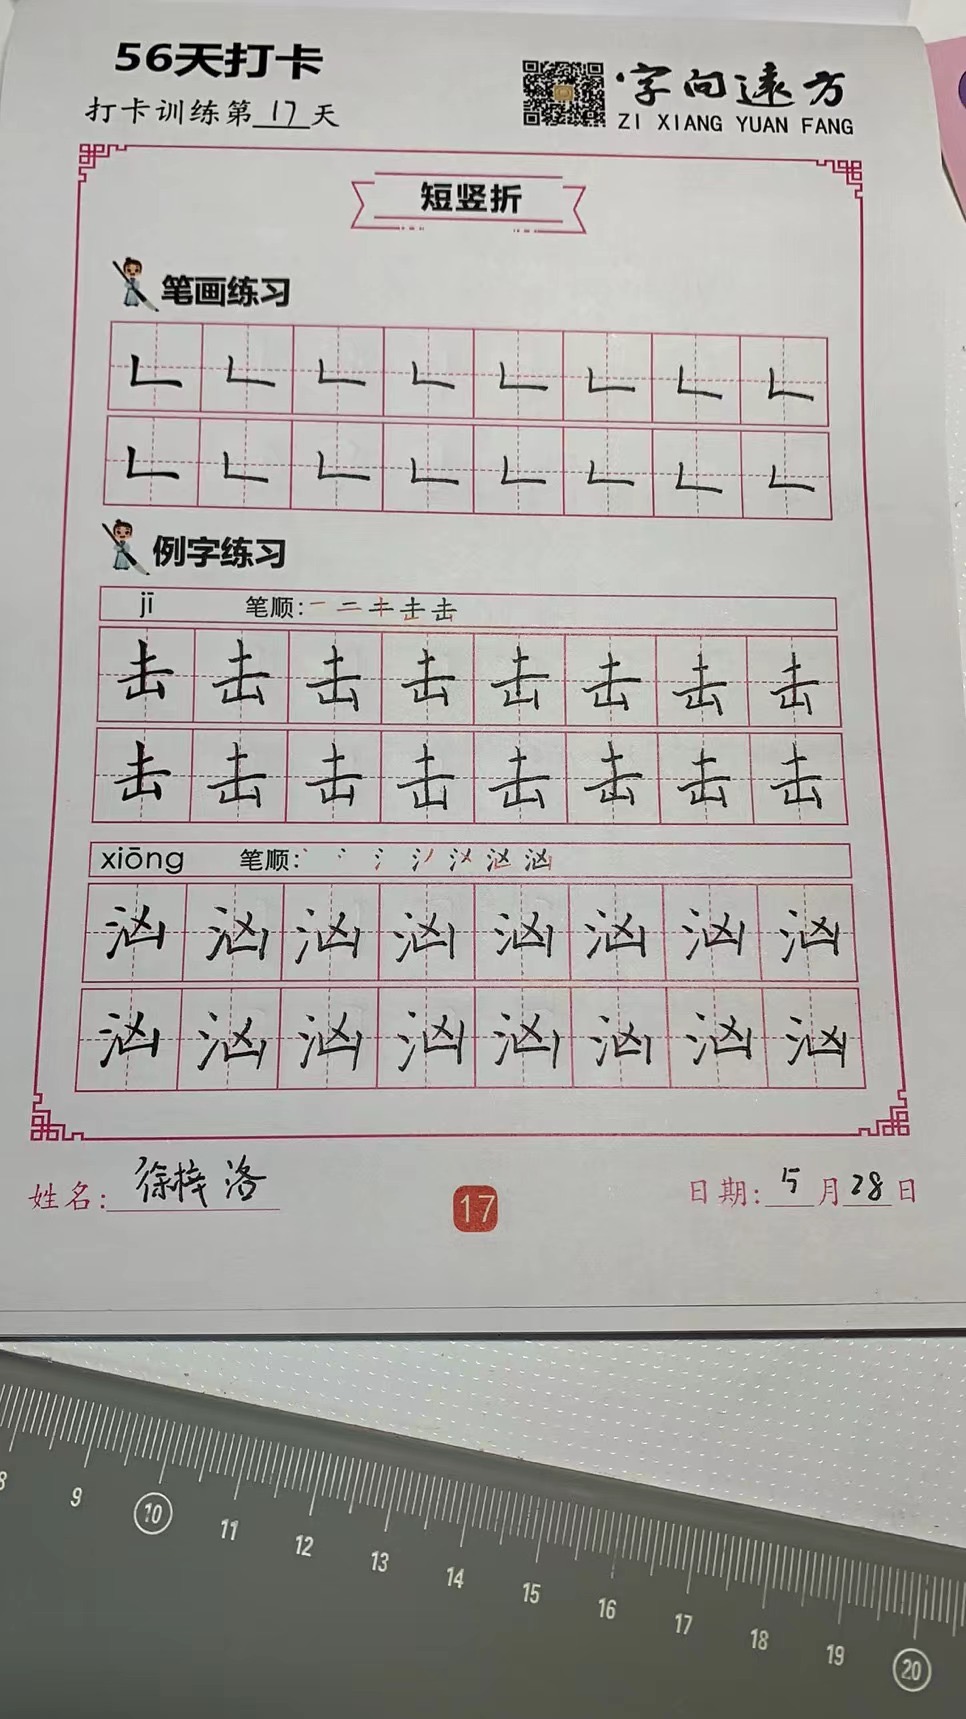 56天打卡
打卡训练第17天
字向远方
ZI XIANG YUAN FANG
短竖折
笔画练习
𠃊 𠃊 𠃊 𠃊 𠃊 𠃊 𠃊 𠃊
𠃊 𠃊 𠃊 𠃊 𠃊 𠃊 𠃊 𠃊
例字练习
jī 笔顺:
击 击 击 击 击 击 击 击
击 击 击 击 击 击 击 击
xiōng 笔顺:
汹 汹 汹 汹 汹 汹 汹 汹
汹 汹 汹 汹 汹 汹 汹 汹
姓名:徐梓洛
17
日期:5月28日
8 9 10 11 12 13 14 15 16 17 18 19 20